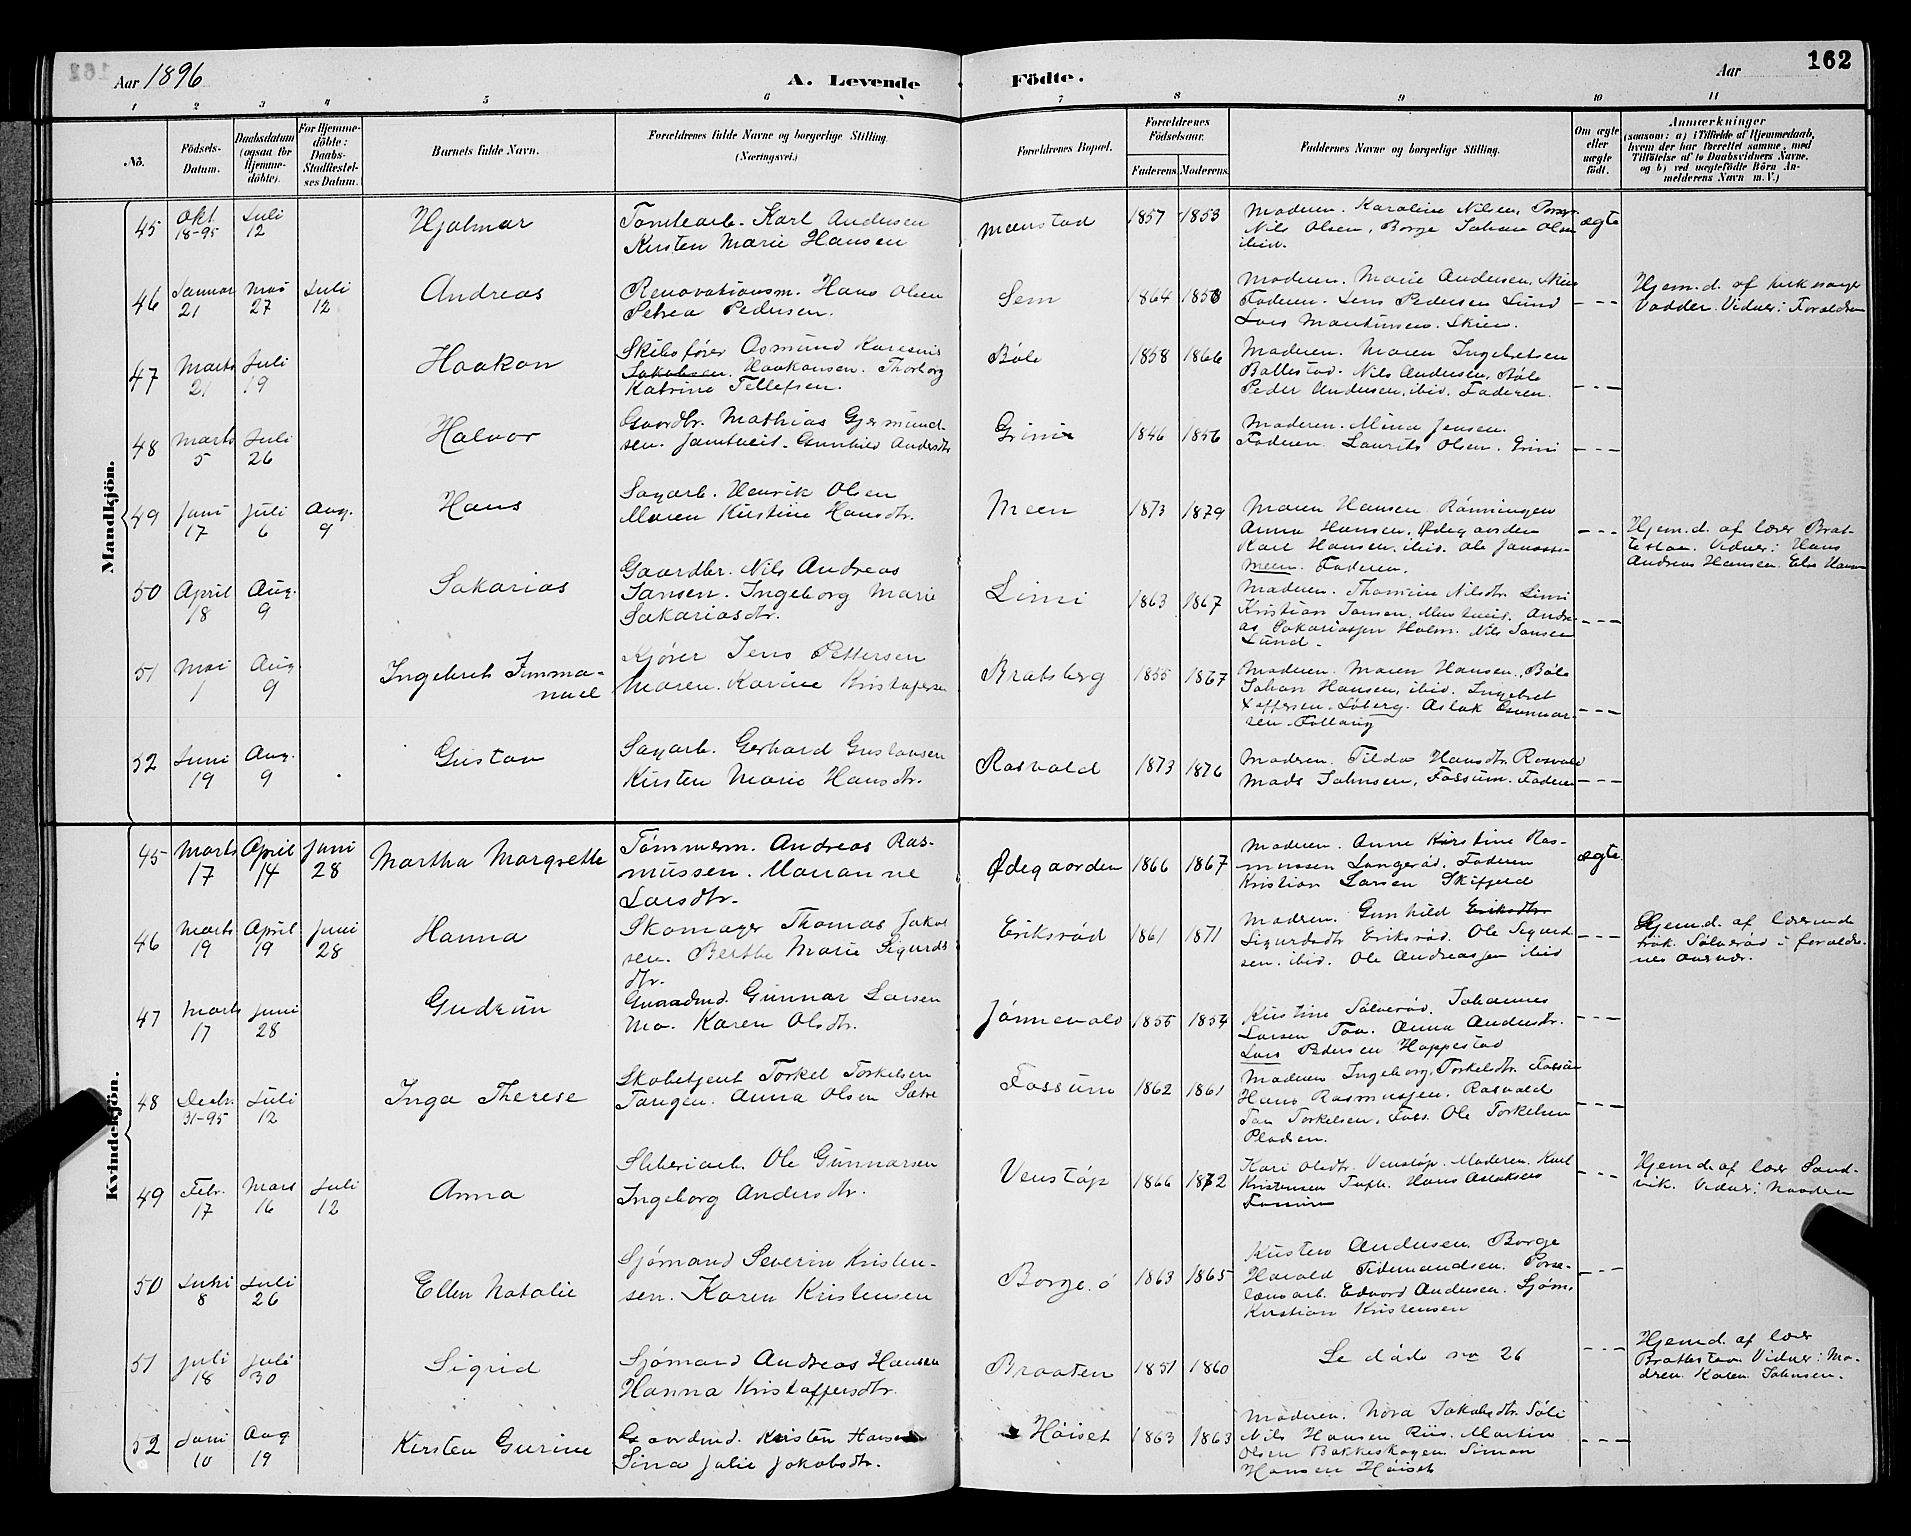 162
Aar 1896
A. Levende Födte.
Aar
1 2 3 4 5 6 7 8 9 10 11
No.
Födsels-Datum.
Daabsdatum (ogsaa for Hjemmedöbte).
For Hjemmedöbte: Daabs-Stadfæstelses Datum.
Barnets fulde Navn.
Forældrenes fulde Navne og borgerlige Stilling. (Næringsvei.)
Forældrenes Bopæl.
Forældrenes Födselsaar.
Faderens. Moderens.
Faddernes Navne og borgerlige Stilling.
Om ægte eller uægte født.
Anmærkninger
(saasom: a) i Tilfælde af Hjemmedaab,
hvem der har forrettet samme, med
Tilföielse af to Daabsvidners Navne,
og b) ved uægtefödte Börn An-
melderens Navn m. V.)
Mandkjön.
45 Okt 18-95 Juli 12 Hjalmar
Tomtearb. Karl Andersen
Kirsten Marie Hansen
Menstad 1857 1853
Moderen. Karoline Nilsen, Porsgr.
Nils Olsen, Borge Johan Olsen
ibid.
ægte
46 Januar 21 Mai 27 Juli 12 Andreas
Renovationsm. Hans Olsen
Petrea Pedersen.
Sem 1864 1858
Moderen. Marie Andersen, Skien
Faderen. Jens Pedersen Lund
Lars Martinsen. Skien.
Hjem.d. af kirkesanger
Vadder. Vidner: Forældrene
47 Marts 21 Juli 19 Haakon
Skibsfører Asmund Karesius
Jakobsen. Haakonsen. Thorborg
Katrine Tellefsen.
Bøle 1858 1866
Moderen. Maren Ingebretsen
Ballestad. Nils Andersen, Bøle
Peder Andersen, ibid. Faderen.
48 Marts 5 Juli 26 Halvor
Gaardbr. Mathias Gjermund-
sen. Jamtveit. Gunhild Andersdtr
Grini 1846 1856
Moderen. Mina Jensen.
Faderen. Laurits Olsen. Grini
49 Juni 17 Juli 6 Aug. 9 Hans
Sagarb. Henrik Olsen
Maren Kirstine Hansdtr.
Meen 1873 1879
Maren Hansen Rønningen
Anna Hansen, Ødegaarden
Karl Hansen, ibid. Ole Janssen
Meen. Faderen.
Hjem.d. af lærer Brat-
testaa. Vidner: Hans
Andreas Hansen. Else Hansen
50 April 18 Aug. 9 Sakarias
Gaardbr. Nils Andreas
Jansen. Ingeborg Marie
Sakariasdtr.
Limi 1863 1867
Moderen. Thomine Nilsdtr. Limi
Kristian Jansen, Andre-
as Sakariassen Holm. Nils Jansen
Lund.
51 Mai 1 Aug 9 Ingebret Imma-
nuel
Kjører Jens Pettersen
Maren Karine Kristofersen
Bratsberg 1855 1867
Moderen. Maren Hansen, Bøle
Johan Hansen, ibid. Ingebret
Løberg. Aslak Gunnar-
sen
52 Juni 19 Aug. 9 Gustav
Sagarb. Gerhard Gustavsen
Kirsten Marie Hansdtr.
Rasvald 1873 1876
Moderen. Tilda Hansdtr. Rasvald
Mads Johnsen, Fossum. Faderen
Kvindekjön.
45 Marts 17 April 14 Juni 28 Martha Margrethe
Tømmerm. Andreas Ras-
mussen. Marianne
Larsdtr.
Ødegaarden 1866 1867
Moderen. Anne Kirstine Ras-
mussen Langerød. Faderen
Kristian Larsen Skifjeld
ægte.
46 Marts 19 April 19 Juni 28 Hanna
Skomager Thomas Jakob-
sen. Berthe Marie Sigurds
dtr.
Eriksrød 1861 1871
Moderen. Gunhild Eriksdtr.
Sigurdsdtr Eriksrød. Ole Sigurd-
sen. ibid. Ole Andreassen ibid
Hjem.d. af lærerinde
frøk. Solverød i forældre-
nes nærvær.
47 Marts 17 Juni 28 Gudrun
Gaardmd. Gunnar Larsen
Mo. Karen Olsdtr.
Jønnevald 1855 1854
Kirstine Solverød. Johannes
Larsen Foss. Anna Andersdtr.
Lars Pedersen Hoppestad
48 Decbr. 31-95 Juli 12 Inga Therese
Skobetjent Torkel Torkelsen
Tangen. Anna Olsen Sætre
Fossum 1862 1861
Moderen Ingeborg Torkelsdtr. Fossum
Hans Rasmussen. Rasvald
Jan Torkelsen, Foss. Ole Torkelsen
Pladsen.
49 Febr. 17 Mars 16 Juli 12 Anna
Sliberiarb. Ole Gunnarsen
Ingeborg Andersdtr.
Venstøp 1866 1872
Kari Olsdtr. Venstøp. Moderen. Karl
Kristensen Tufte. Hans Aslaksen
Fossum
Hjem.d. af lærer Sand-
vik. Vidner: Moderen
50 Juni 8 Juli 26 Ellen Natalie
Sjømand Severin Kristen-
sen. Karen Kristensen
Borge.ö 1863 1865
Kirsten Andersen. Borge
Harald Tidemandsen. Porse-
lænsarb. Edvard Andersen. Sjøm.
Kristian Kristensen
51 Juli 18 Juli 30 Sigrid
Sjømand Andreas Hansen
Hanna Kristoffersdtr.
Braaten 1851 1860
Se døde no 26
Hjem.d. af lærer
Brattestaa. Vidner: Mo-
dren. Karen Johnsen.
52 Juni 10 Aug 19 Kirsten Gurine
Gaardmd. Kristen Hansen
Sina Julie Jakobsdtr.
Høiset 1863 1863
Moderen. Nora Jakobsdtr. Søli
Nils Hansen Riis. Martin
Olsen Bakkeskogen. Simon
Hansen Høiset